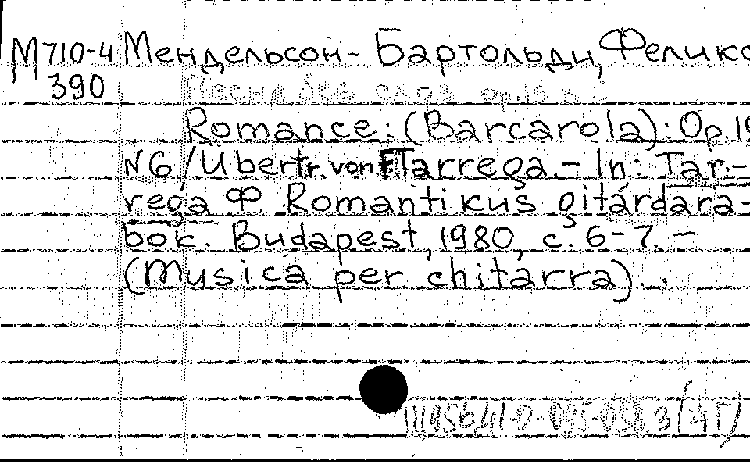 М710-4 Мендельсон-Бартольди, Феликс
390
Romance: (Barcarola): Op.19
N6/Ubertr. von F. Tarrega.- In: Tar.-
rega Ф. Romantikus gitárdara-
bok. Budapest, 1980, с. 6-7. -
(Musica per chitarra).